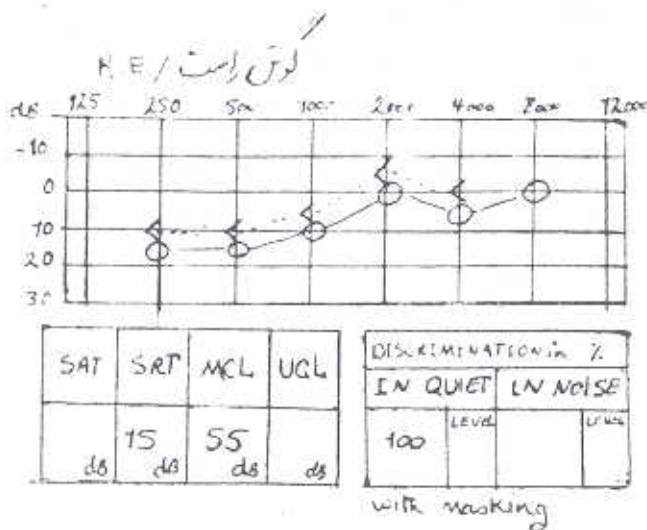 R.E / گوش راست
dB 125 250 500 1000 2000 4000 8000 12000
-10
0
10
20
30
SAT SRT MCL UCL
15 55
dB dB dB dB
DISCRIMINATION in %
IN QUIET IN NOISE
100 LEVEL LEVEL
with masking